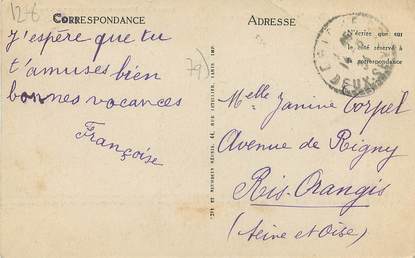 12-6
CORRESPONDANCE
J'espère que tu
t'amuses bien
bonnes vacances
Françoise
79)
ADRESSE
N'écrire que sur
le côté réservé à
la correspondance
DEUX-S
Melle Janine Torpel
Avenue de Rigny
Ris-Orangis
(Seine et Oise)